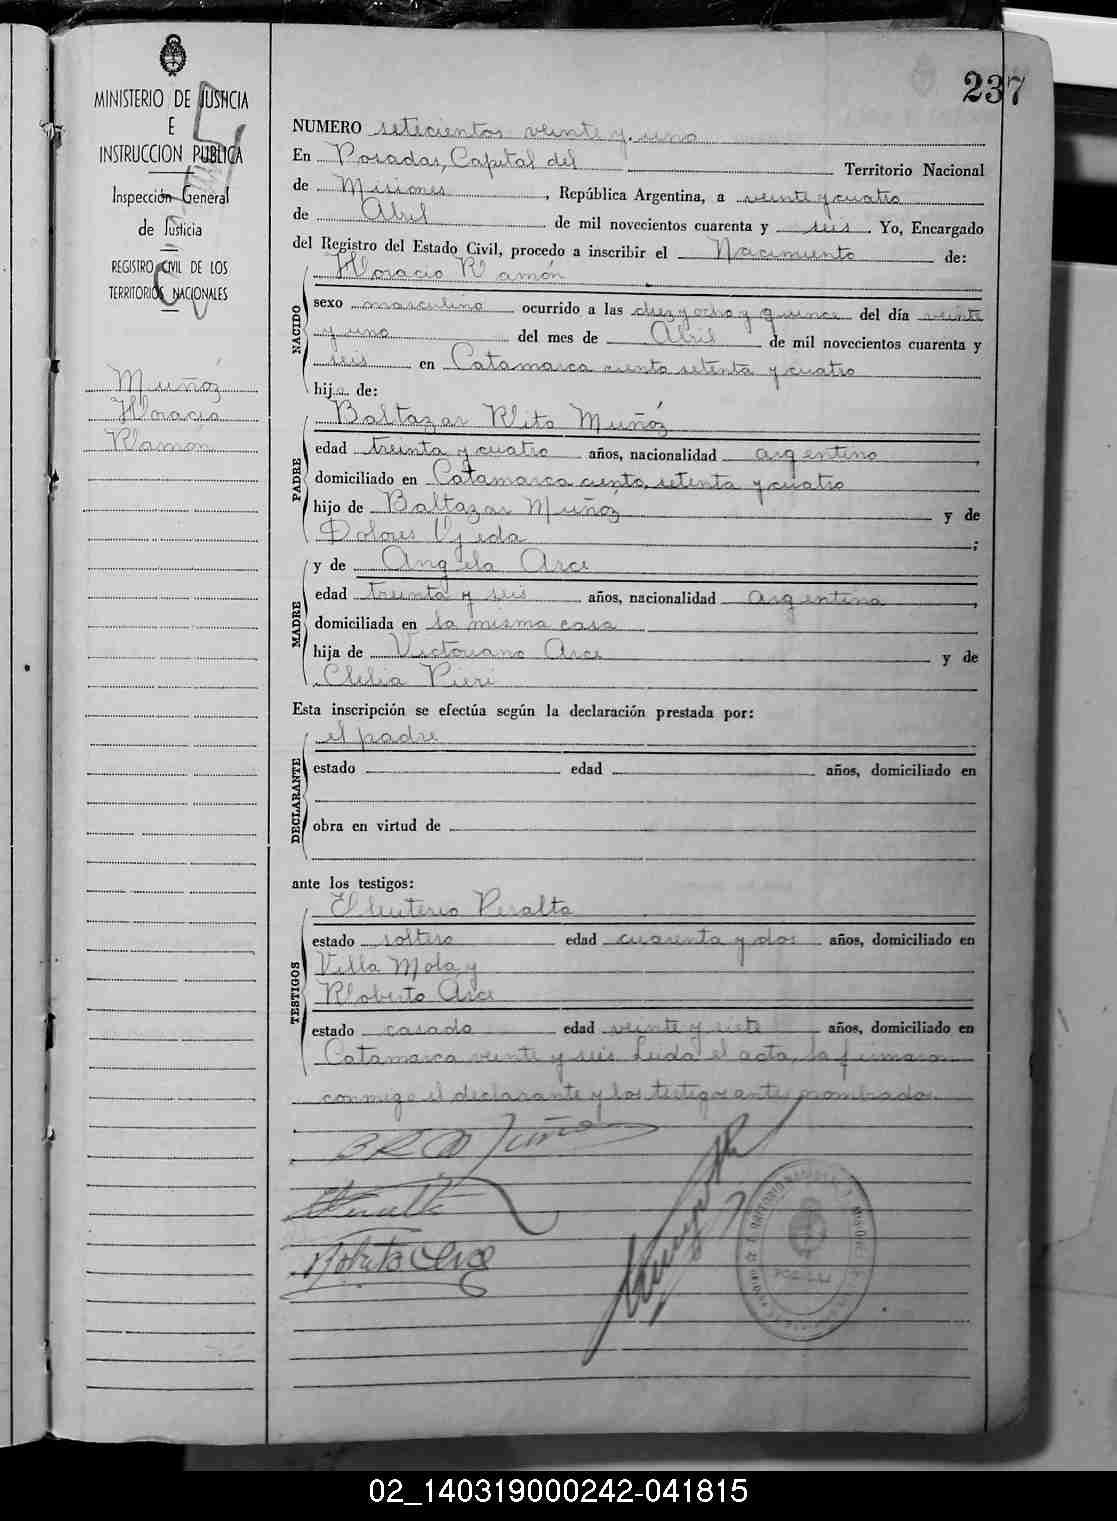 237
MINISTERIO DE JUSTICIA
E
INSTRUCCION PUBLICA
Inspección General
de Justicia
REGISTRO CIVIL DE LOS
TERRITORIOS NACIONALES
Muñóz
Horacio
Ramón
NUMERO setecientos veinte y uno
En Posadas, Capital del Territorio Nacional
de Misiones, República Argentina, a veinte y cuatro
de Abril de mil novecientos cuarenta y seis. Yo, Encargado
del Registro del Estado Civil, procedo a inscribir el Nacimiento de:
Horacio Ramón
NACIDO
sexo masculino ocurrido a las diez y ocho y quince del día veinte
y uno del mes de Abril de mil novecientos cuarenta y
seis en Catamarca ciento setenta y cuatro
hijo de:
Baltazar Rito Muñóz
PADRE
edad treinta y cuatro años, nacionalidad argentino,
domiciliado en Catamarca ciento setenta y cuatro
hijo de Baltazar Muñóz y de
Dolores Ojeda;
y de Angela Arce
MADRE
edad treinta y seis años, nacionalidad argentina,
domiciliada en la misma casa
hija de Victoriano Arce y de
Clelia Pieri
Esta inscripción se efectúa según la declaración prestada por:
el padre
DECLARANTE
estado edad años, domiciliado en
obra en virtud de
ante los testigos:
Eleuterio Peralta
TESTIGOS
estado soltero edad cuarenta y dos años, domiciliado en
Villa Mola y
Roberto Arce
estado casado edad veinte y siete años, domiciliado en
Catamarca veinte y seis. Leida el acta, la firmaron
conmigo el declarante y los testigos antes nombrados.
B R Muñoz
Peralta
Roberto Arce
POSADAS
02_140319000242-041815